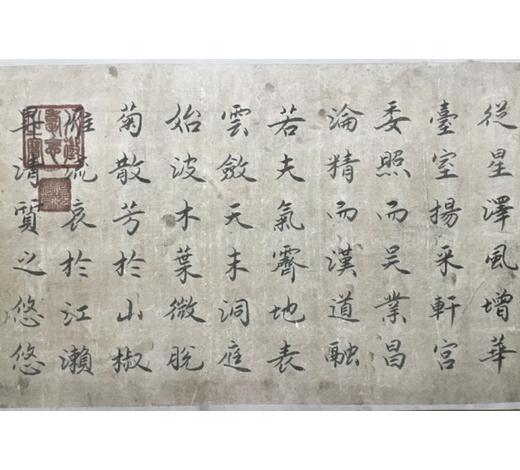 從星澤風增華
臺室揚采軒宮
委照而吳業昌
淪精而漢道融
若夫氣霽地表
雲斂天末洞庭
始波木葉微脫
菊散芳於山椒
雁流哀於江瀨
清質之悠悠